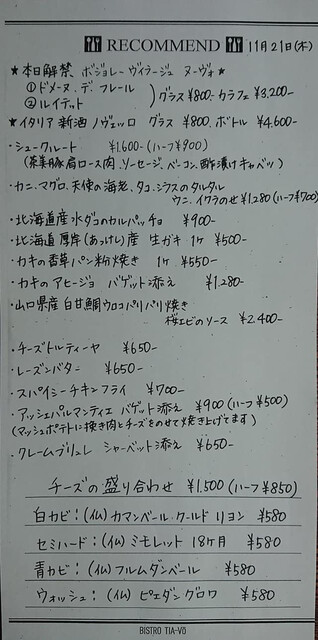 RECOMMEND 11月21日(木)
★本日解禁 ボジョレーヴィラージュ ヌーヴォ★
①ドメーヌ.デ フレール
②ルイテット
グラス¥800- カラフェ¥3,200-
★イタリア新酒 ノヴェッロ グラス ¥800、ボトル ¥4,600-
・シュークルート ¥1,600-(ハーフ¥900)
(茶美豚肩ロース肉、ソーセージ、ベーコン、酢漬けキャベツ)
・カニ、マグロ、天使の海老、タコ、シラスのタルタル
ウニ、イクラのせ¥1,280(ハーフ¥700)
・北海道産水ダコのカルパッチョ ¥900-
・北海道 厚岸(あっけし)産 生ガキ 1ヶ ¥500-
・カキの香草パン粉焼き 1ヶ ¥550-
・カキのアヒージョ バゲット添え ¥1,280-
・山口県産 白甘鯛ウロコパリパリ焼き
桜エビのソース ¥2,400-
・チーズトルティーヤ ¥650-
・レーズンバター ¥650-
・スパイシーチキンフライ ¥700-
・アッシェパルマンティエ バゲット添え ¥900(ハーフ¥500)
(マッシュポテトに挽き肉とチーズをのせて焼き上げてます)
・クレームブリュレ シャーベット添え ¥650-
チーズの盛り合わせ ¥1,500(ハーフ¥850)
白カビ:(仏)カマンベール・クールド リヨン ¥580
セミハード:(仏)ミモレット 18ヶ月 ¥580
青カビ:(仏)フルムダンベール ¥580
ウォッシュ:(仏)ピエダングロワ ¥580
BISTRO TIA-VO